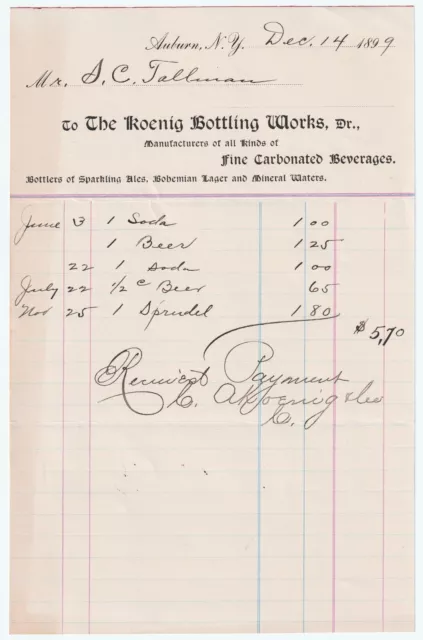 Auburn, N.Y. Dec. 14 1899
Mr. S. C. Tallman
To The Koenig Bottling Works, Dr.,
Manufacturers of all Kinds of
Fine Carbonated Beverages.
Bottlers of Sparkling Ales, Bohemian Lager and Mineral Waters.
June 13 1 Soda 1 00
1 Beer 1 25
22 1 Soda 1 00
July 22 1/2 c Beer 65
Nov 25 1 Sprudel 1 80
$5,70
Payment
C. A Koenig & Co